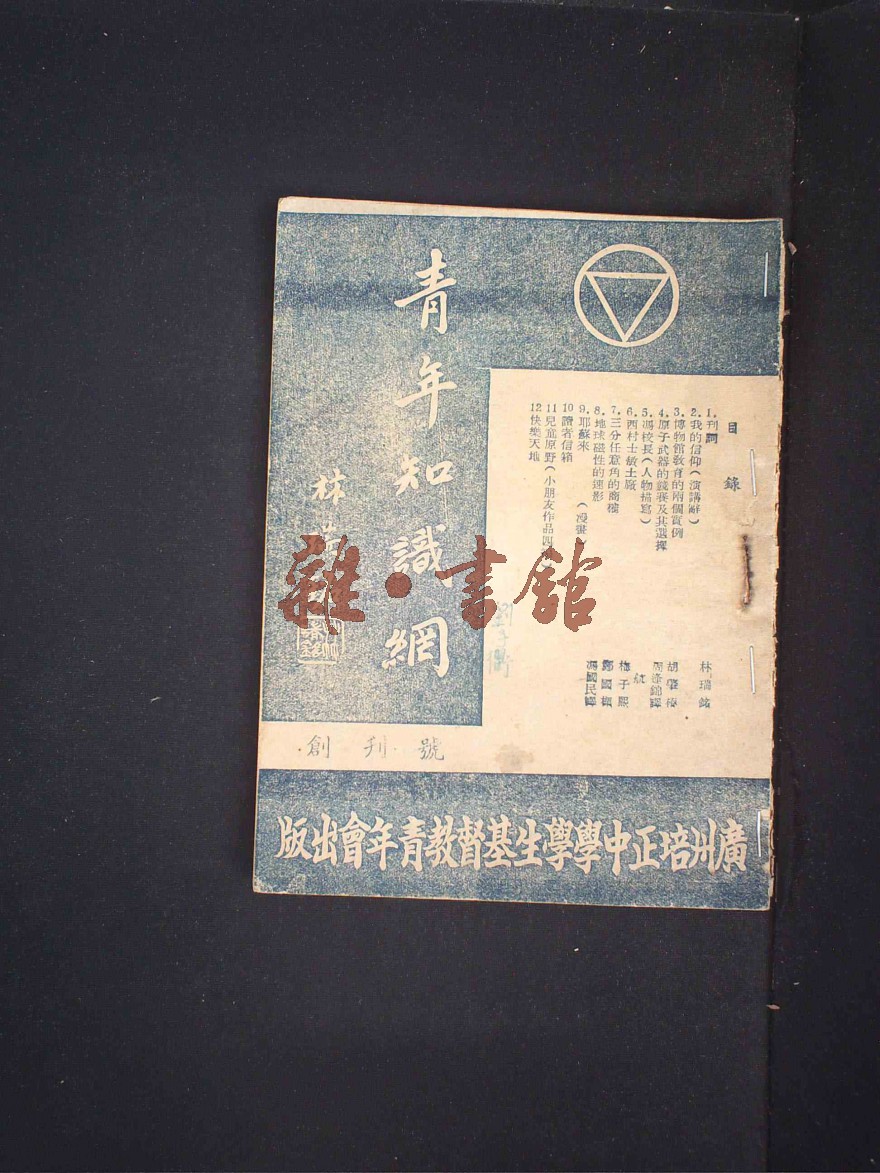 青年知識網
林
目錄
1. 刊詞
2. 我的信仰(演講辭) 林瑞銘
3. 博物館敎育的兩個實例
4. 原子武器的競賽及其選擇 胡肇椿
5. 馮校長(人物描寫)
6. 西村士敏土廠
7. 三分任意角的商榷 梅子熙
8. 地球磁性的速影
9. 耶蘇來 (漫畫 馮國民譯
10 讀者信箱
11 兒童原野(小朋友作品四
12 快樂天地
創刊號
廣州培正中學學生基督教青年會出版
雜·書館